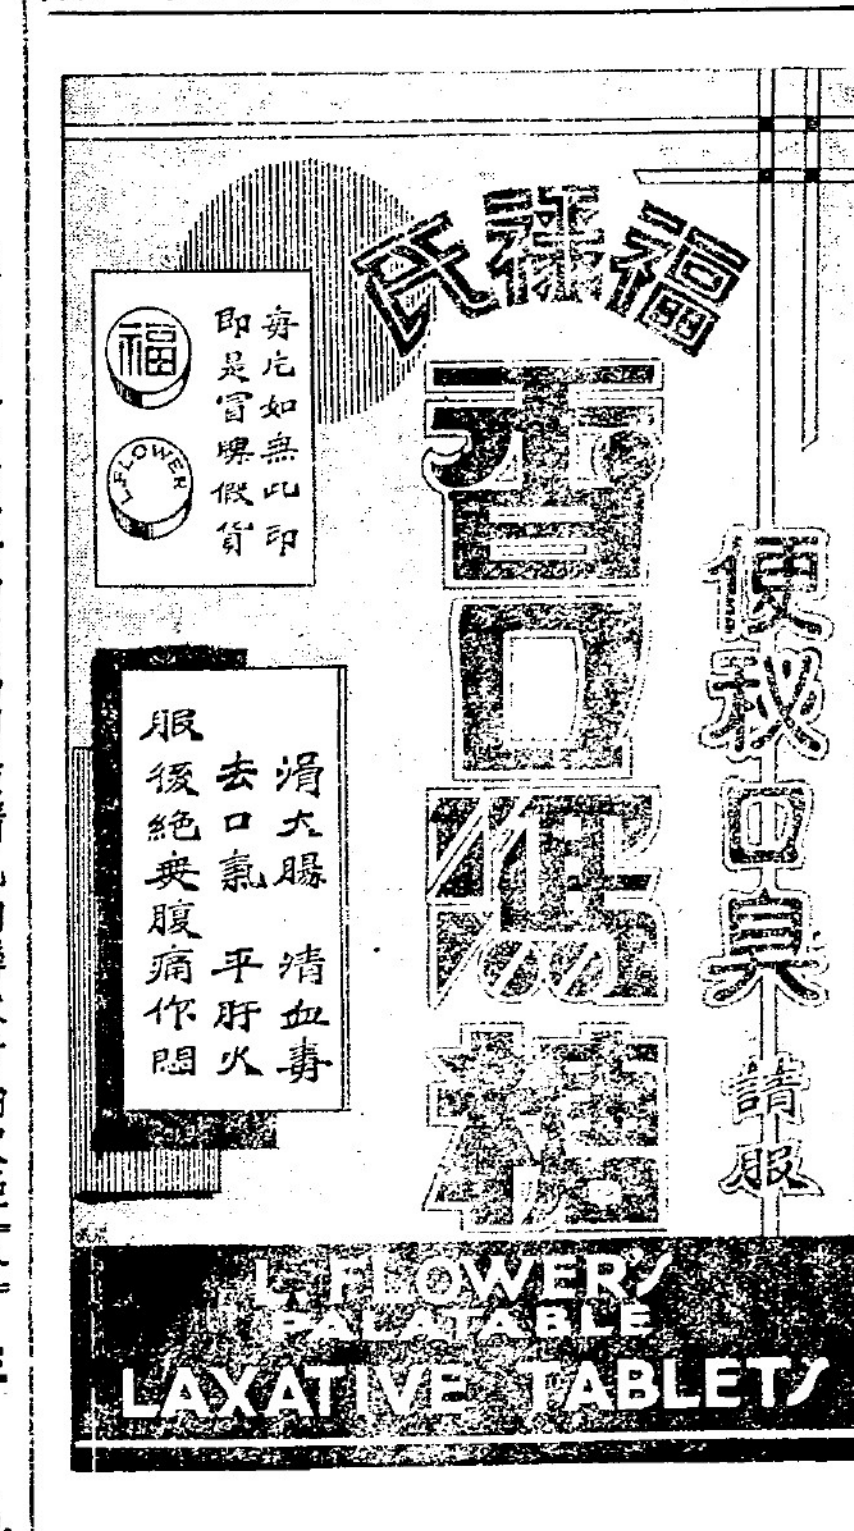 便秘口臭 請服
福祿氏
香口糖
每片如無此印
即是冒牌假貨
福
L. FLOWER
涓大腸 清血毒
去口氣 平肝火
服後絕無腹痛作悶
L. FLOWER'S
PALATABLE
LAXATIVE TABLETS